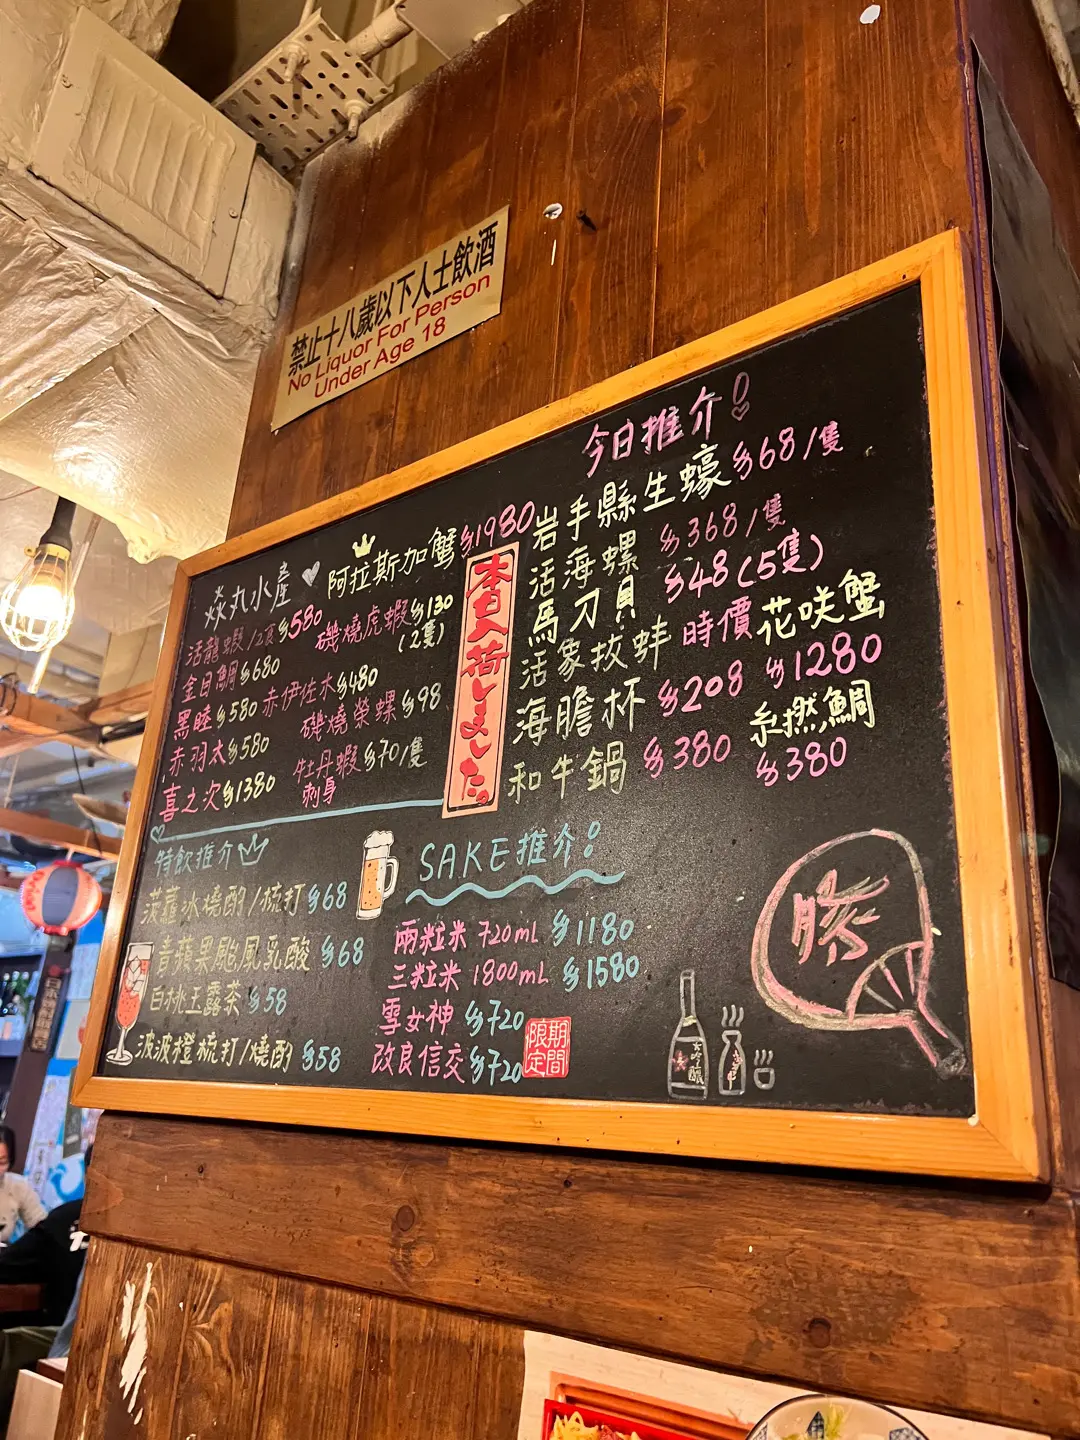 禁止十八歲以下人士飲酒
No Liquor For Person
Under Age 18
今日推介!
岩手縣生蠔$68/隻
活海螺 $368/隻
馬刀貝 $48(5隻)
活象拔蚌 時價
海膽杯 $208
和牛鍋 $380
花咲蟹
$1280
糸撚鯛
$380
本日入荷しました。
焱丸水產
阿拉斯加蟹$1980
活龍蝦/2食$580
金目鯛$680
黑睦$580
赤羽太$580
喜之次$1380
磯燒虎蝦$130
(2隻)
赤伊佐木$480
磯燒榮螺$98
牡丹蝦$70/隻
刺身
特飲推介
菠蘿冰燒酌/梳打$68
青蘋果颱風乳酸$68
白桃玉露茶$58
波波橙梳打/燒酌$58
SAKE推介:
兩粒米 720mL $1180
三粒米 1800mL $1580
雪女神 $720
改良信交$720
期間
限定
勝
大吟釀